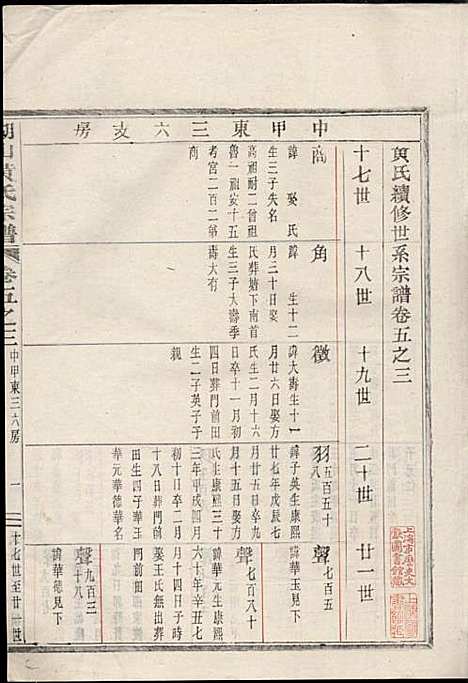 黄氏續修世系宗譜卷五之三
十七世 十八世 十九世 二十世 廿一世
中甲東三六支房
商
諱 娶 氏
生三子失名
高祖耐二曾祖
魯一祖安十五
考宮二百二第
商
角
諱 生十二
月三十日娶
氏葬塘下南
生三子大壽季
壽大有
徵
諱大壽生十一
月廿六日娶方
氏生二月十六
日卒十一月初
四日葬門前田
生二子英子于
親
羽五百五十八
諱子英生康熙
廿七年戊辰七
月廿五日卒九
月十五日娶方
氏生康熙三十
三年甲戌四月
初十日卒二月
十八日葬門前
田生四子華玉
華元華德華名
聲七百五
諱華玉見下
聲七百八十
諱華元生康熙
六十年辛丑七
月十四日子時
娶王氏無出葬
門前田
聲九百三
諱華德見下
黄氏宗譜
卷五之三
中甲東三六房
一
十七世至廿一世
上海市歷史文獻圖書館藏